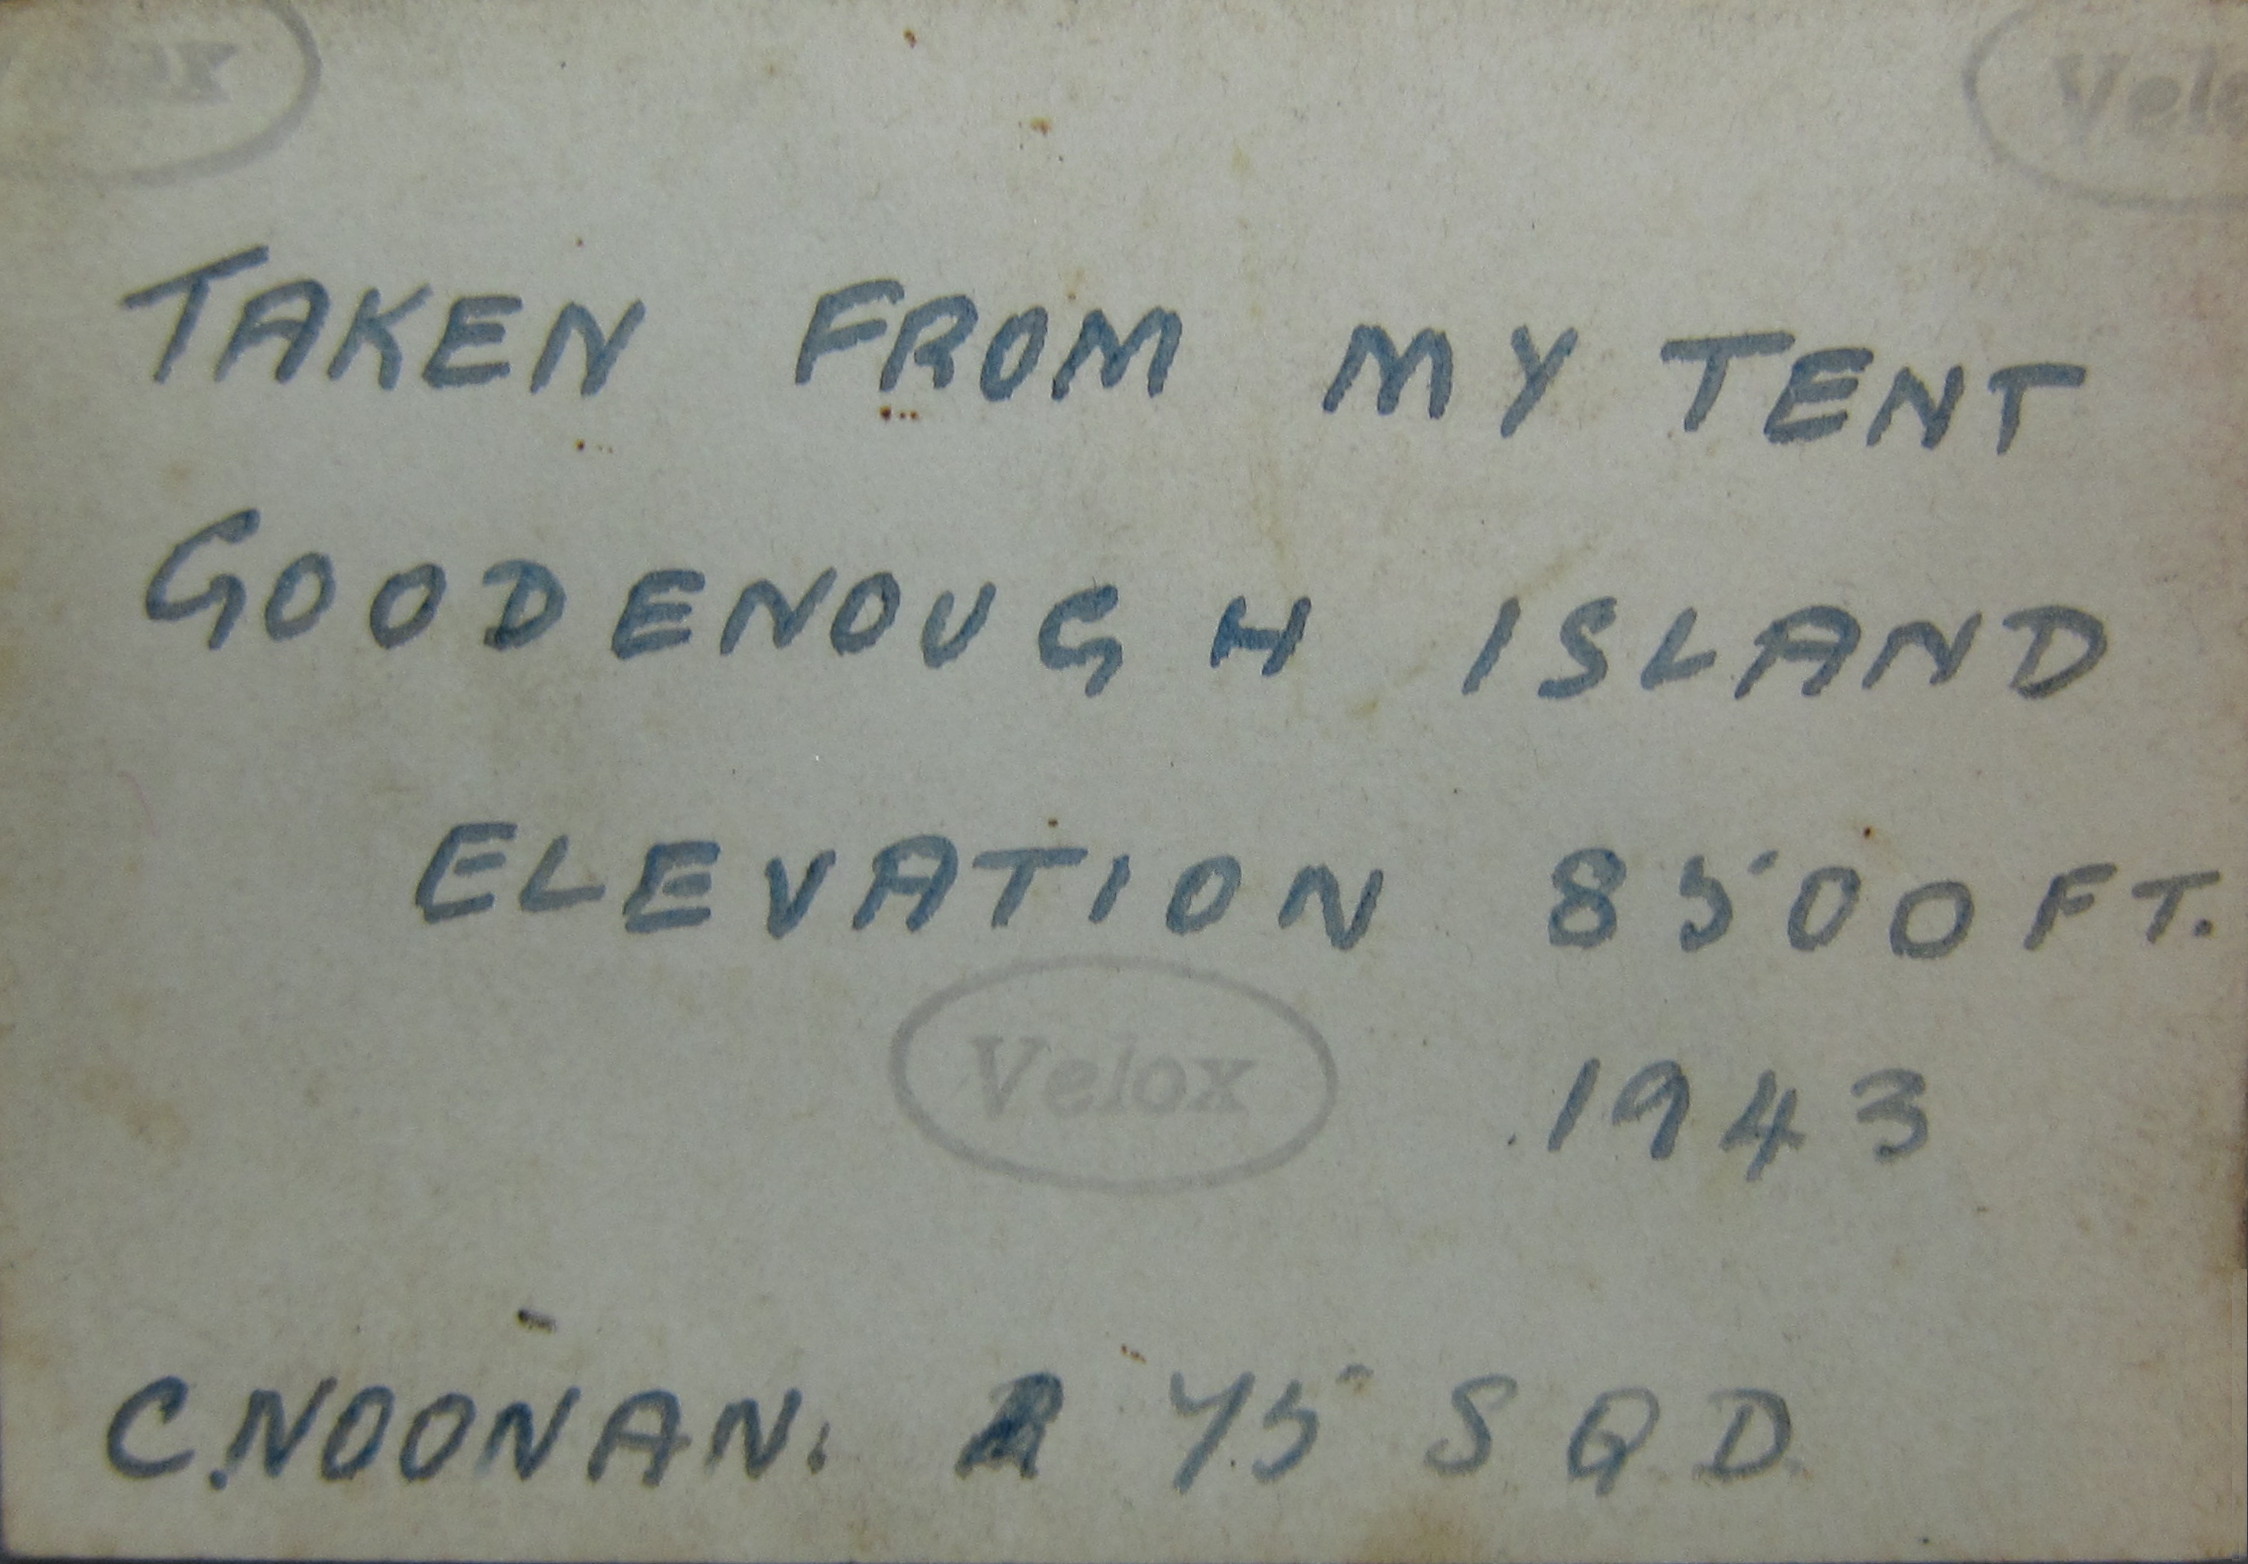 Velox
TAKEN FROM MY TENT
GOODENOUGH ISLAND
ELEVATION 8500 FT.
Velox
1943
C.NOONAN. 75 SQD